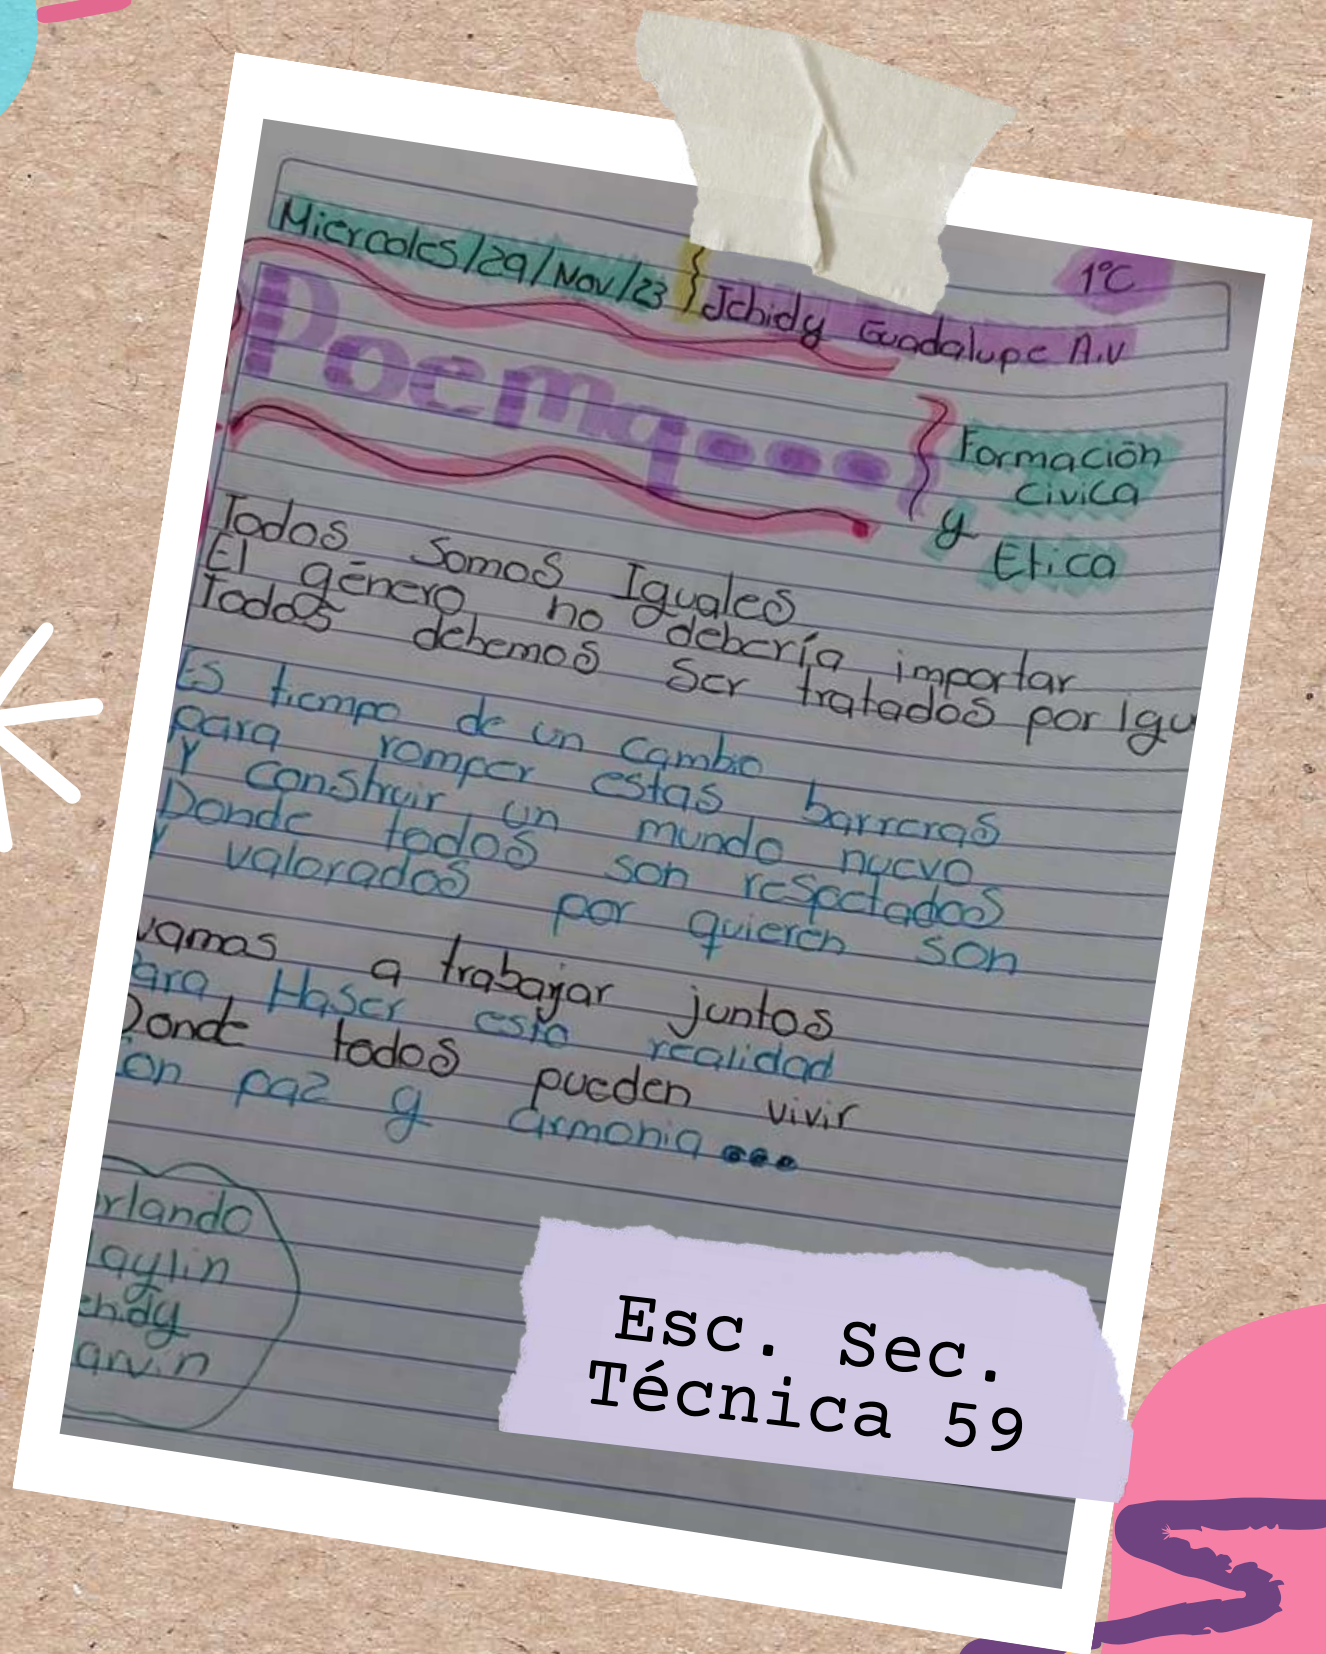 Miercoles/29/Nov/23 } Jehidy Guadalupe A.V
1°C
Poema...
Formación
civica
y
Etica
Todos somos Iguales
El género no debería importar
Todos debemos ser tratados por Igu
Es tiempo de un cambio
para romper estas barreras
Y construir un mundo nuevo
Donde todos son respetados
Y valorados por quieren son
vamos a trabajar juntos
para Haser esta realidad
Donde todos pueden vivir
Con paz y armonia...
rlando
aylin
ehidy
arvin
Esc. Sec.
Técnica 59